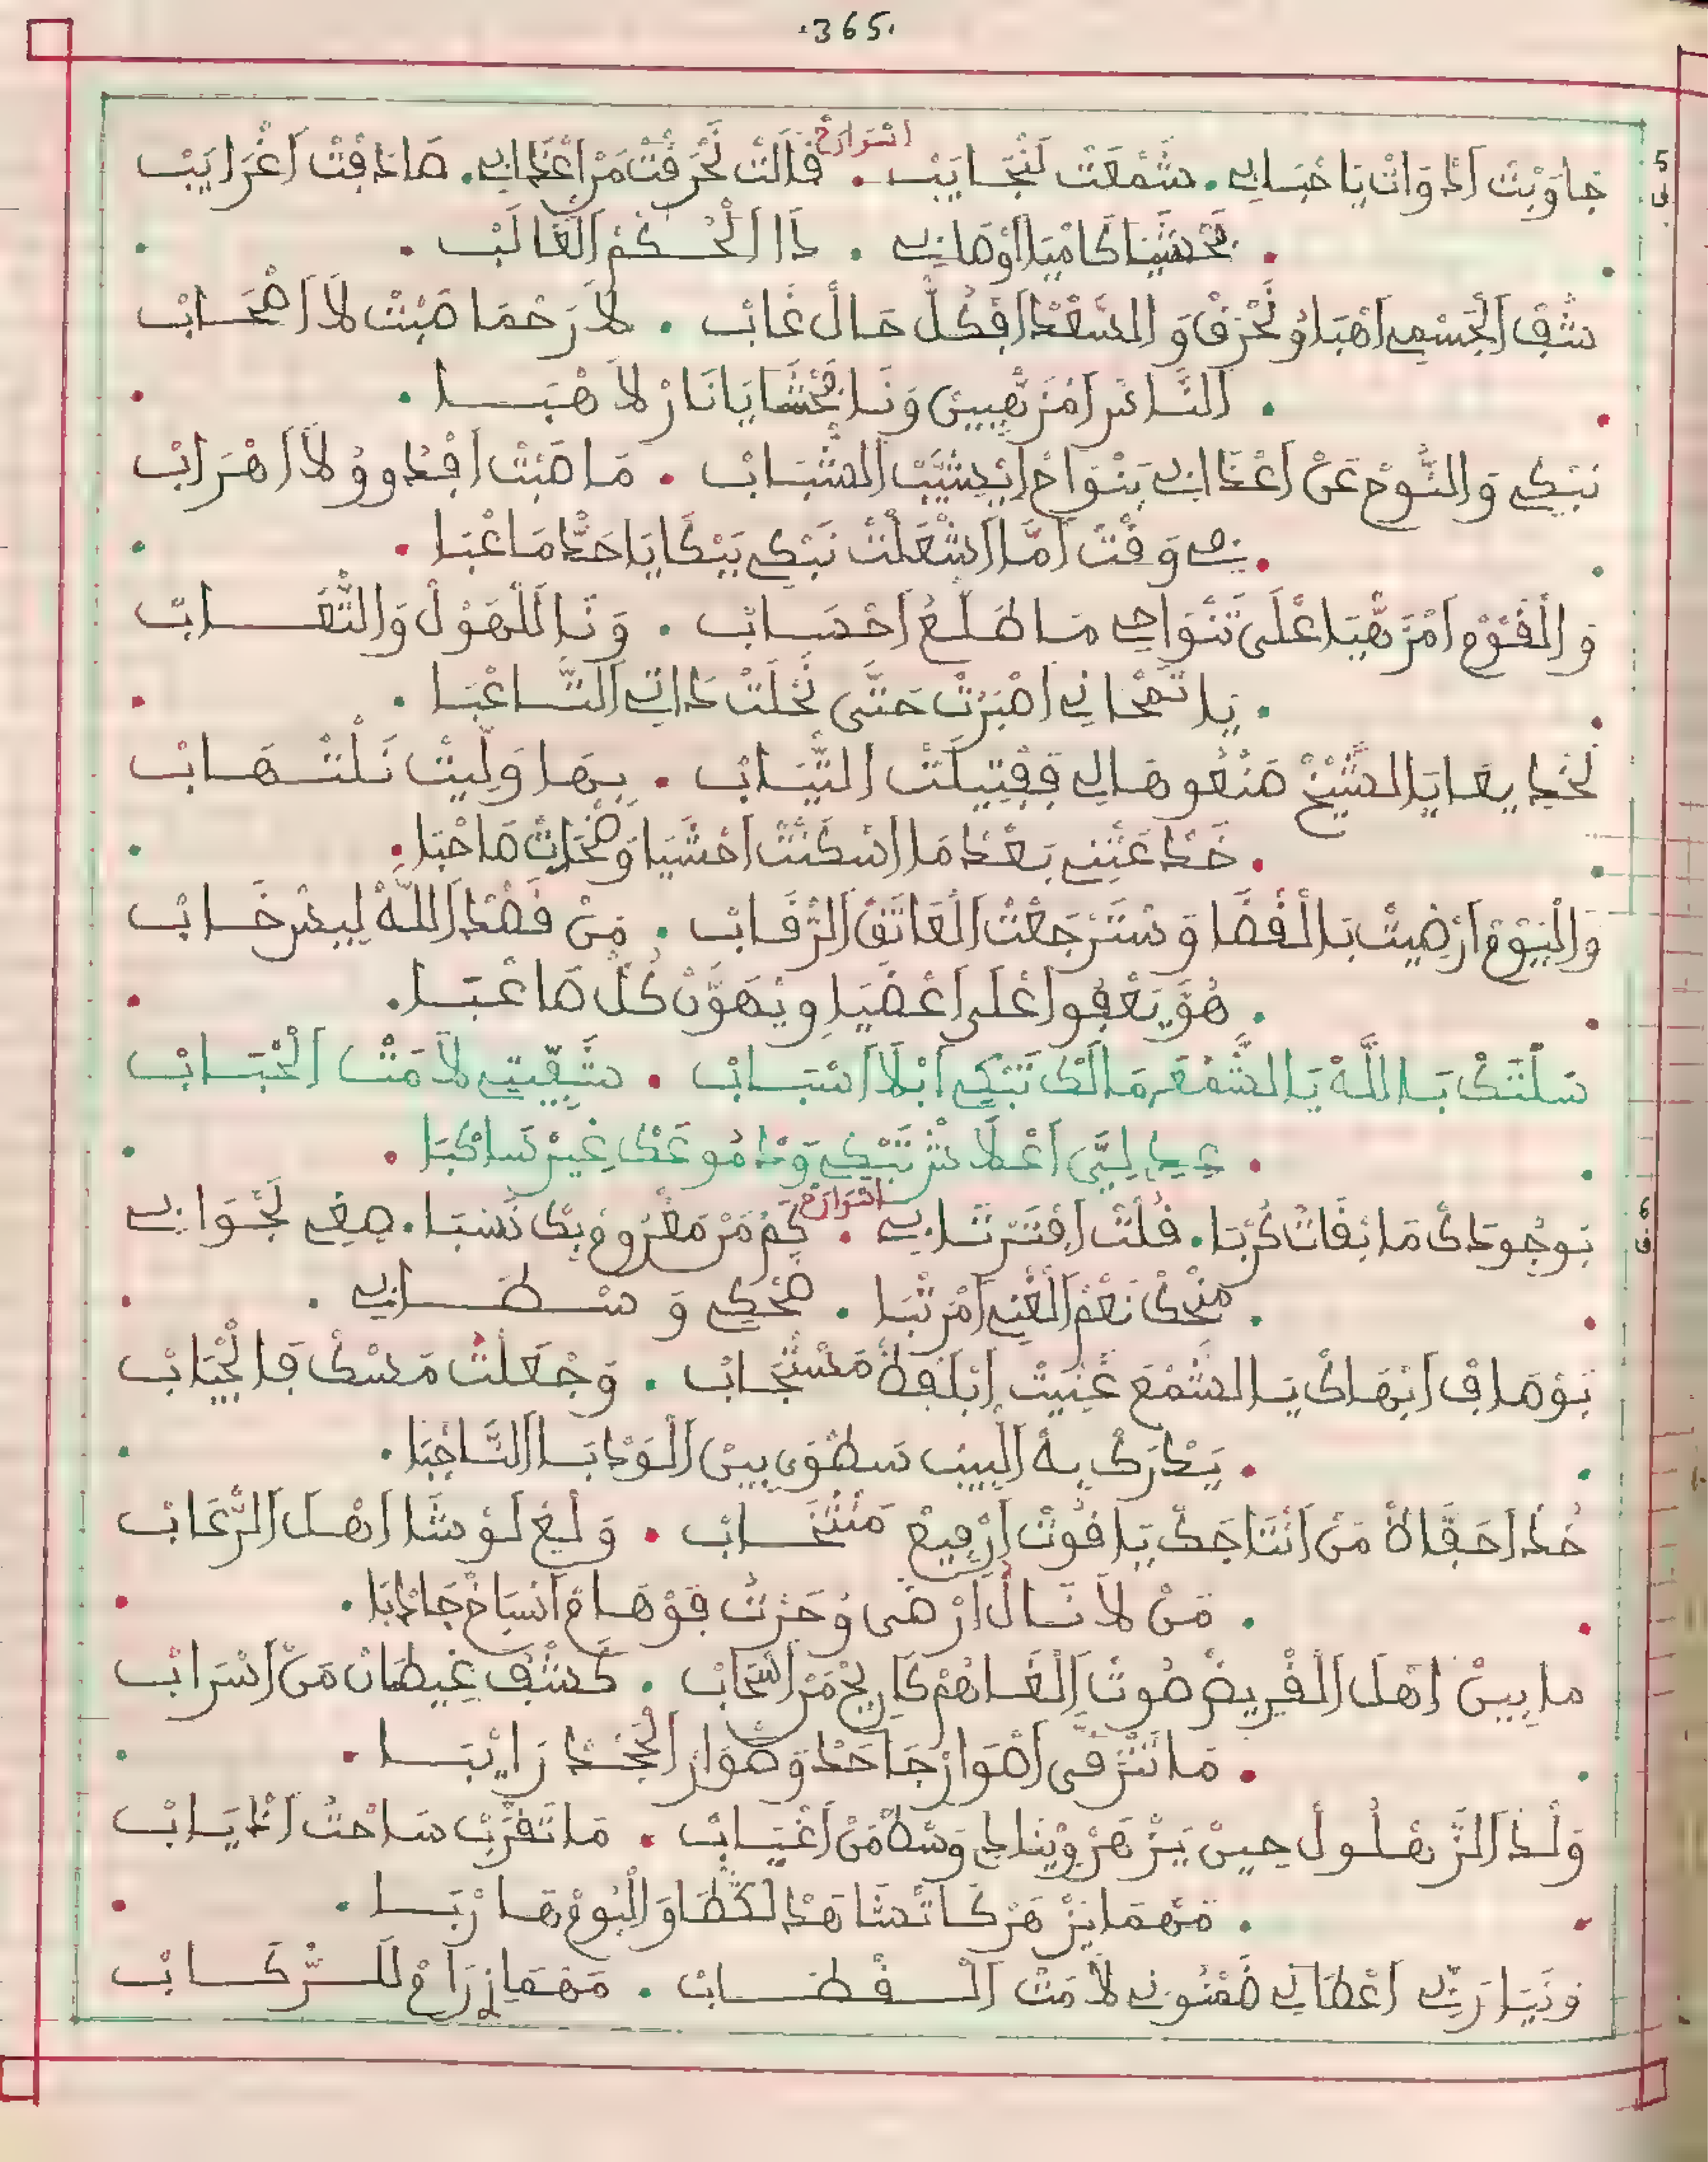 .365.
اسوارح
5 ق
جاوبت اد وات يا حبابي . شمعت لنجايب . قالت نحرقت من اعذابي . صادفت اغرايب
. ذا الحكم الغالب .
شف الجسمي اهبا ونحرق والسعد افكل حال غاب . لا رحما صبت لا اصحاب
. الناس امزهيين ونا نخشا يا نار لاهبا .
نبكي والنوح عن اعذابي بنواح ايشيب الشباب . ما صبت افدوو لا اهراب
. في وقت اما اشعلت نبكي بيكا يا حد ما عبا .
والقوم امزهيا اعلى تنواحي ما طلع احساب . ونا للهول والتعاب
. يا تمحاني اصبرت حتى نحلت داتي التاعبا .
نخديعا يا الشيخ صنعوها لي ففتيلت التياب . بها وليت نلتهاب
. خدعتني بعد ما اسكنت احشيا وصحات صاحبا .
واليوم ارضيت بالقضا وسترجعت العاتق الرقاب . من قصد الله ليس خاب
. هو يعفو اعلى اعضيا ويهون كل صاعبا .
سلتك بالله يا الشمعه مالك تبكي ابلا اسباب . شقيتي لامت الحباب
. عيد ليي اعلاش تبكي ودموعك غير ساكبا .
6 ق
اسوارح
بوجودك ما بقات كربا . قلت افترتابي . كم من مغروم بك نسبا . صغي لجوابي
. منحك نعم الغني امرتبا . ضحكي وسطابي .
بوصاف ابهاك يا الشمع غنيت ابلفظ مستجاب . وجعلت مسك فالجياب
. يدرك به البيب سطوى بين الودبا الناجبا .
خد احفاظ من انتاجك ياقوت ارفيع منتخاب . وليغ لوشا اهل الرعاب
. من لا نال ارضى وحزت قوصاع انساخ جادبا .
ما بين اهل القريض صوت الغاهم كاريح من اسحاب . كشف غيطان من اسراب
. ما تنزفى اصوار جاحد وصوار الجحد رايبا .
ولد الزهلول حين يزهر وينادي وسط من اغياب . ما تقرب ساحت ادياب
. مهما يزهر كاتحشا هد لكظا والبوم هاربا .
ونيا ربي اعطاني ضمنوني لامت القطاب . مهما نزراع للركاب